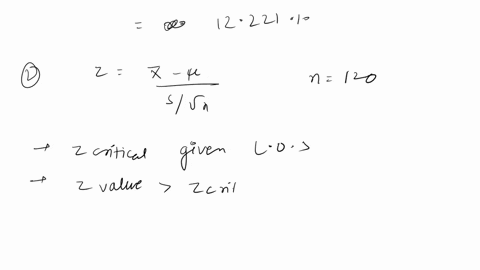 = 12.221.10
② z = x̄ - μ / s/√n n = 120
→ z critical given L.O.S
→ z value > z crit